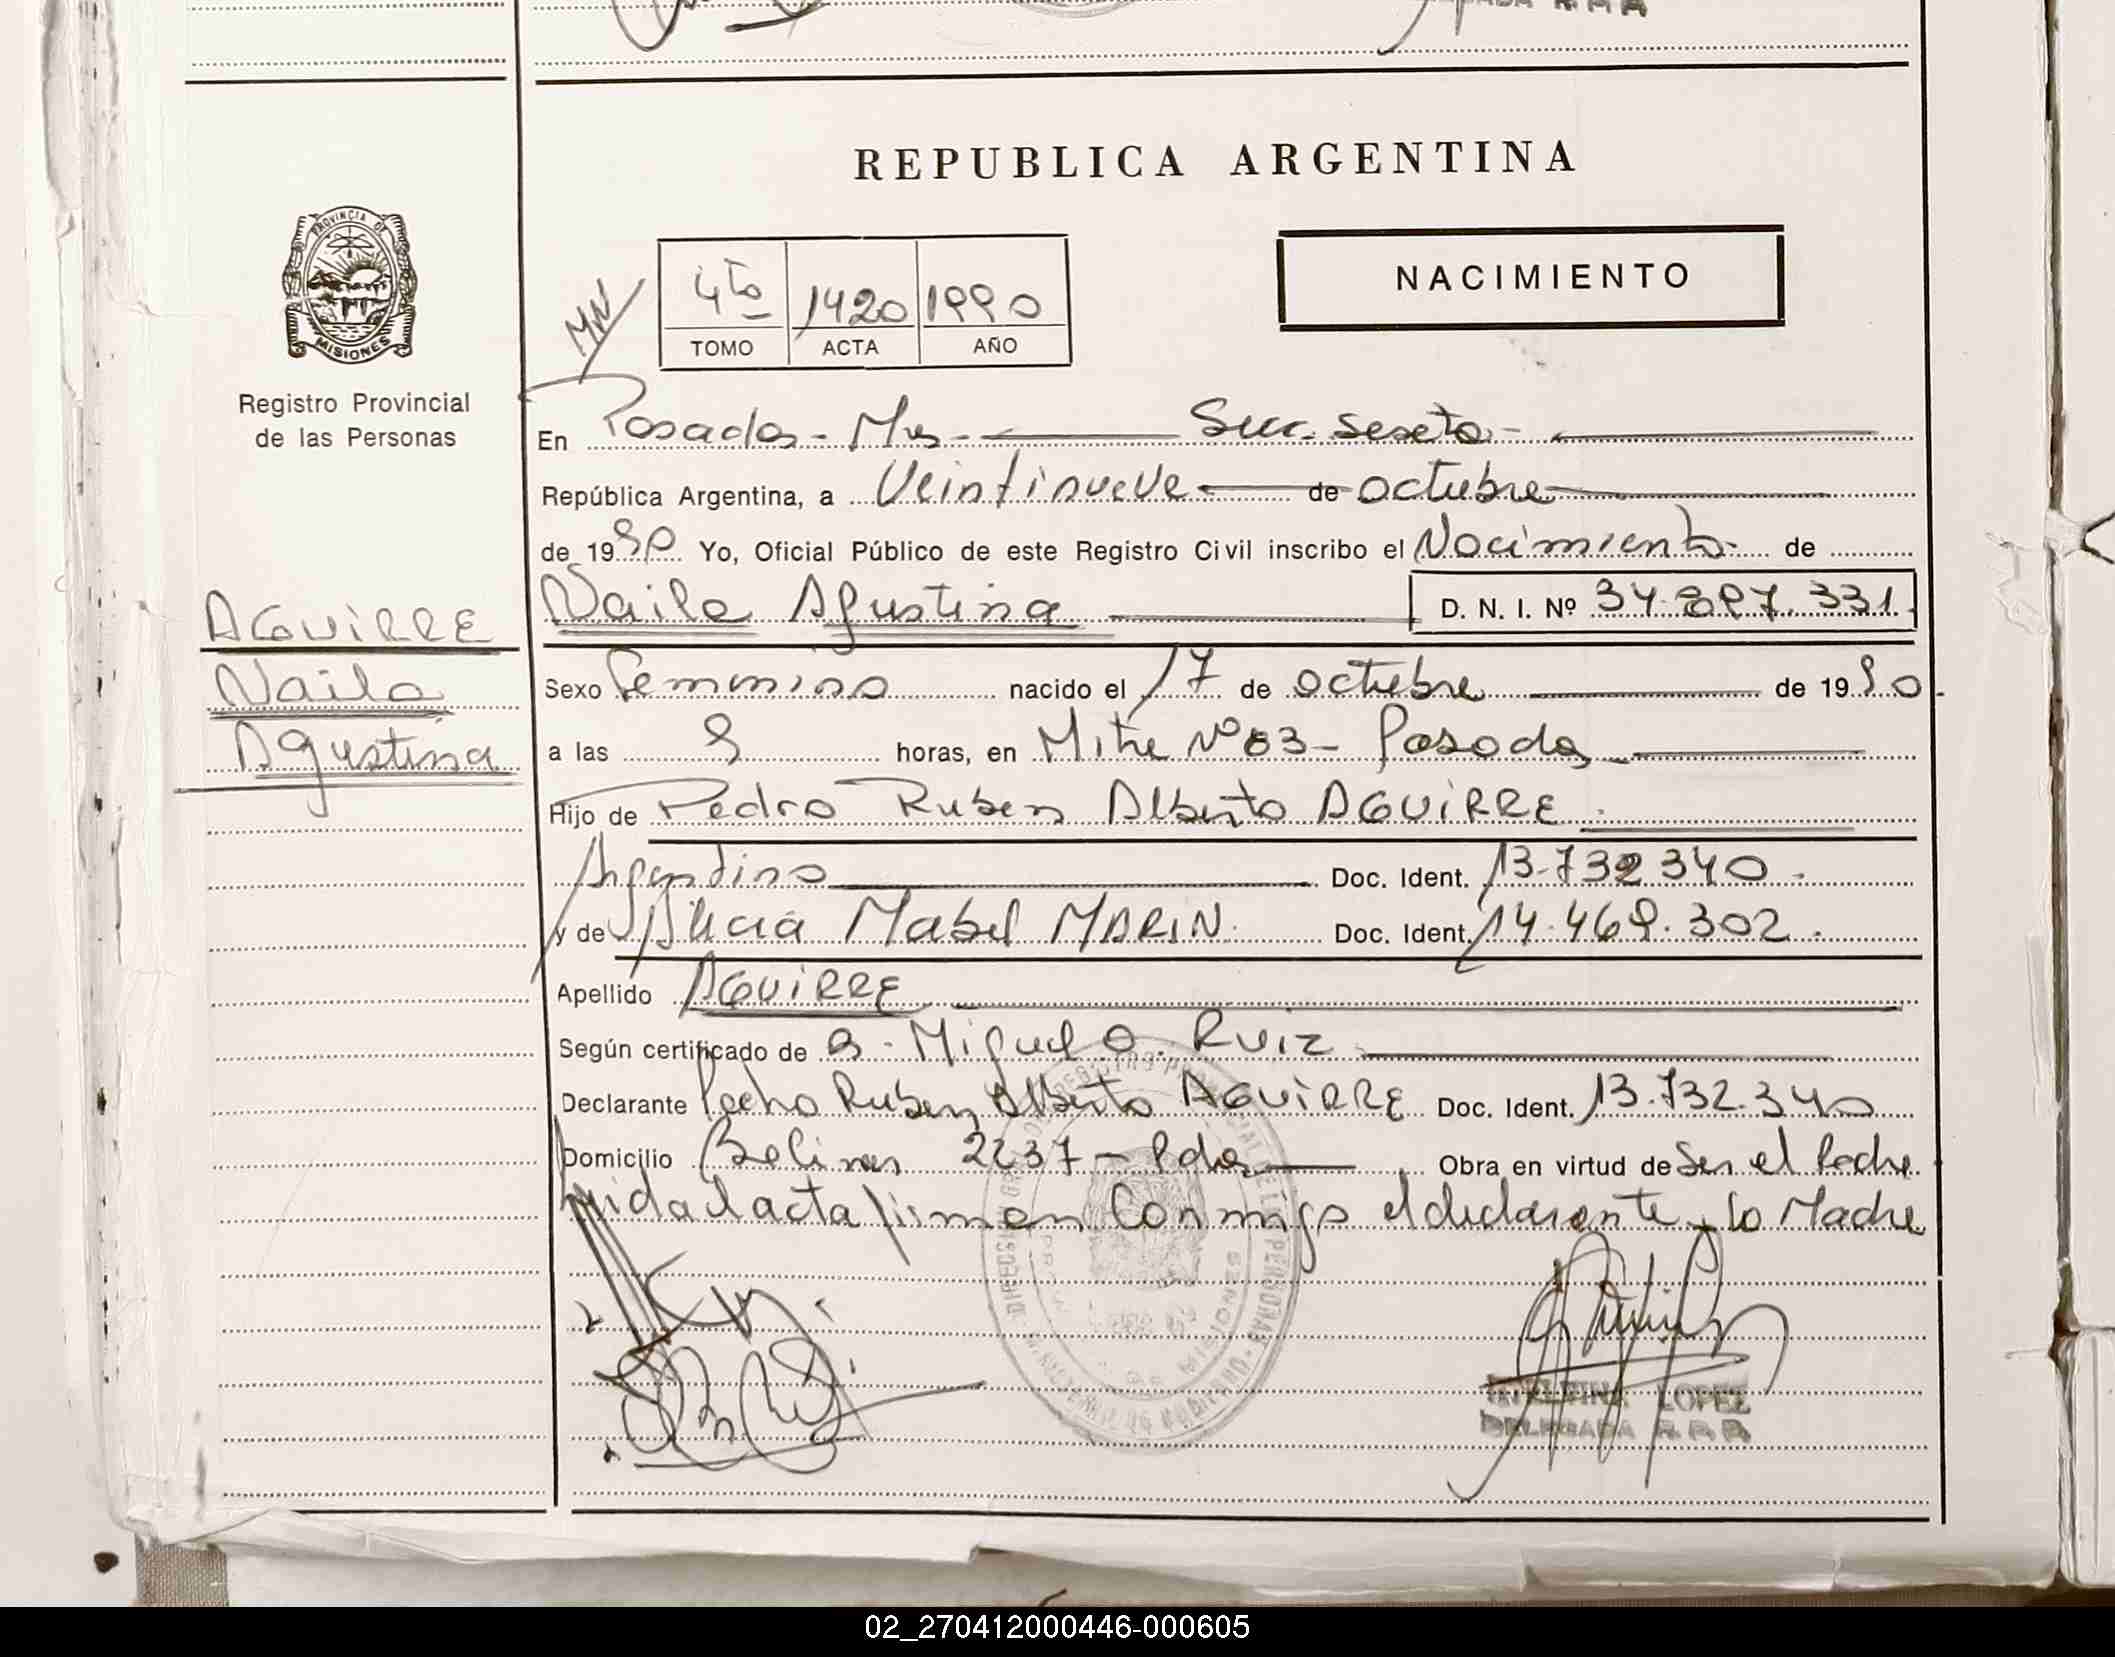 REPUBLICA ARGENTINA
PROVINCIA DE
MISIONES
Registro Provincial
de las Personas
NACIMIENTO
4to 1420 1990
TOMO ACTA AÑO
En Posadas - Mnes - Secc. sexta -
República Argentina, a Veintinueve de octubre
de 1990 Yo, Oficial Público de este Registro Civil inscribo el Nacimiento de
Naila Agustina D. N. I. Nº 34.897.331
AGUIRRE
Naila
Agustina
Sexo Femenino nacido el 17 de octubre de 1990.
a las 9 horas, en Mitre Nº 63 - Posadas
Hijo de Pedro Ruben Alberto AGUIRRE.
Argentino Doc. Ident. 13.732.340.
y de Alicia Mabel MARIN. Doc. Ident. 14.469.302.
Apellido AGUIRRE
Según certificado de Miguel O. Ruiz
Declarante Pedro Ruben Alberto AGUIRRE Doc. Ident. 13.732.340
Domicilio 2237 - Pdas Obra en virtud de Ser el Padre
el acta firman conmigo el declarante y la Madre
LOPEZ
DELEGADA
02_270412000446-000605